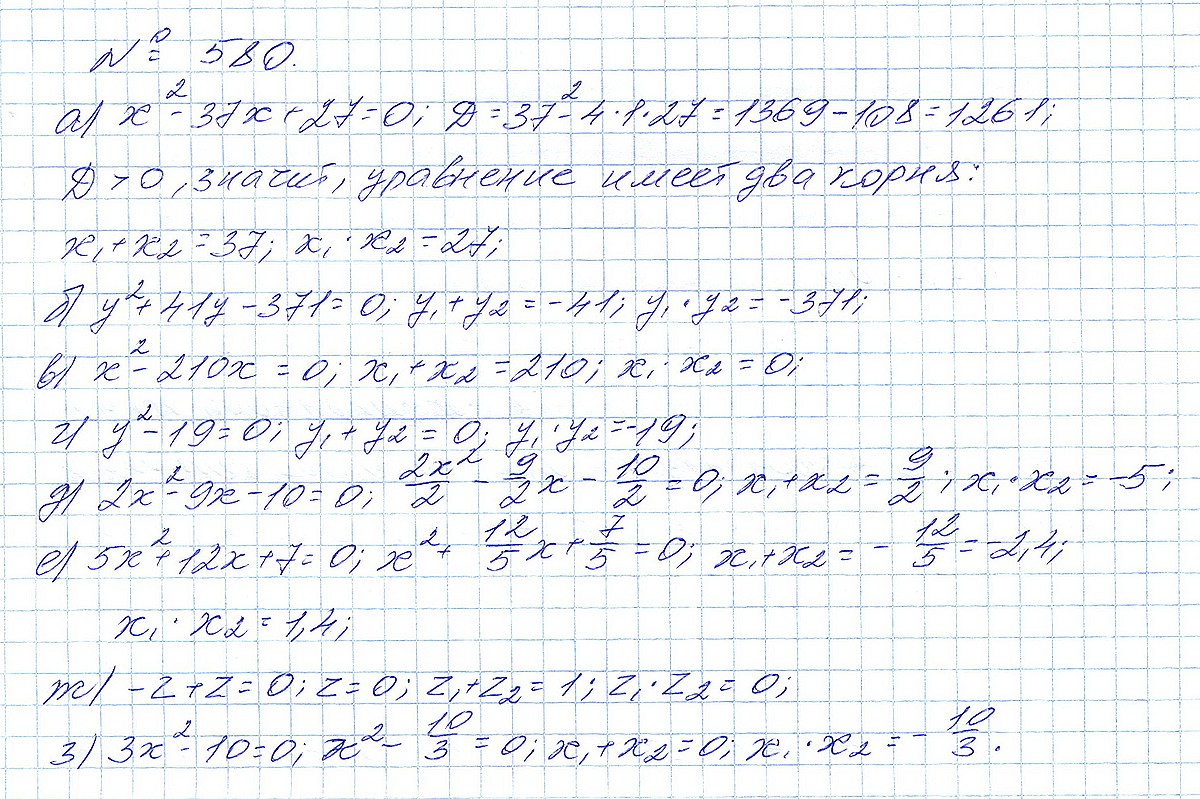 № 580.
а) x² - 37x + 27 = 0; D = 37² - 4·1·27 = 1369 - 108 = 1261;
D > 0, значит, уравнение имеет два корня:
x₁ + x₂ = 37; x₁ · x₂ = 27;
б) y² + 41y - 371 = 0; y₁ + y₂ = -41; y₁ · y₂ = -371;
в) x² - 210x = 0; x₁ + x₂ = 210; x₁ · x₂ = 0;
г) y² - 19 = 0; y₁ + y₂ = 0; y₁ · y₂ = -19;
д) 2x² - 9x - 10 = 0; 2x²/2 - 9/2 x - 10/2 = 0; x₁ + x₂ = 9/2; x₁ · x₂ = -5;
е) 5x² + 12x + 7 = 0; x² + 12/5 x + 7/5 = 0; x₁ + x₂ = - 12/5 = -2,4;
x₁ · x₂ = 1,4;
ж) -z + z = 0; z = 0; z₁ + z₂ = 1; z₁ · z₂ = 0;
з) 3x² - 10 = 0; x² - 10/3 = 0; x₁ + x₂ = 0; x₁ · x₂ = - 10/3.